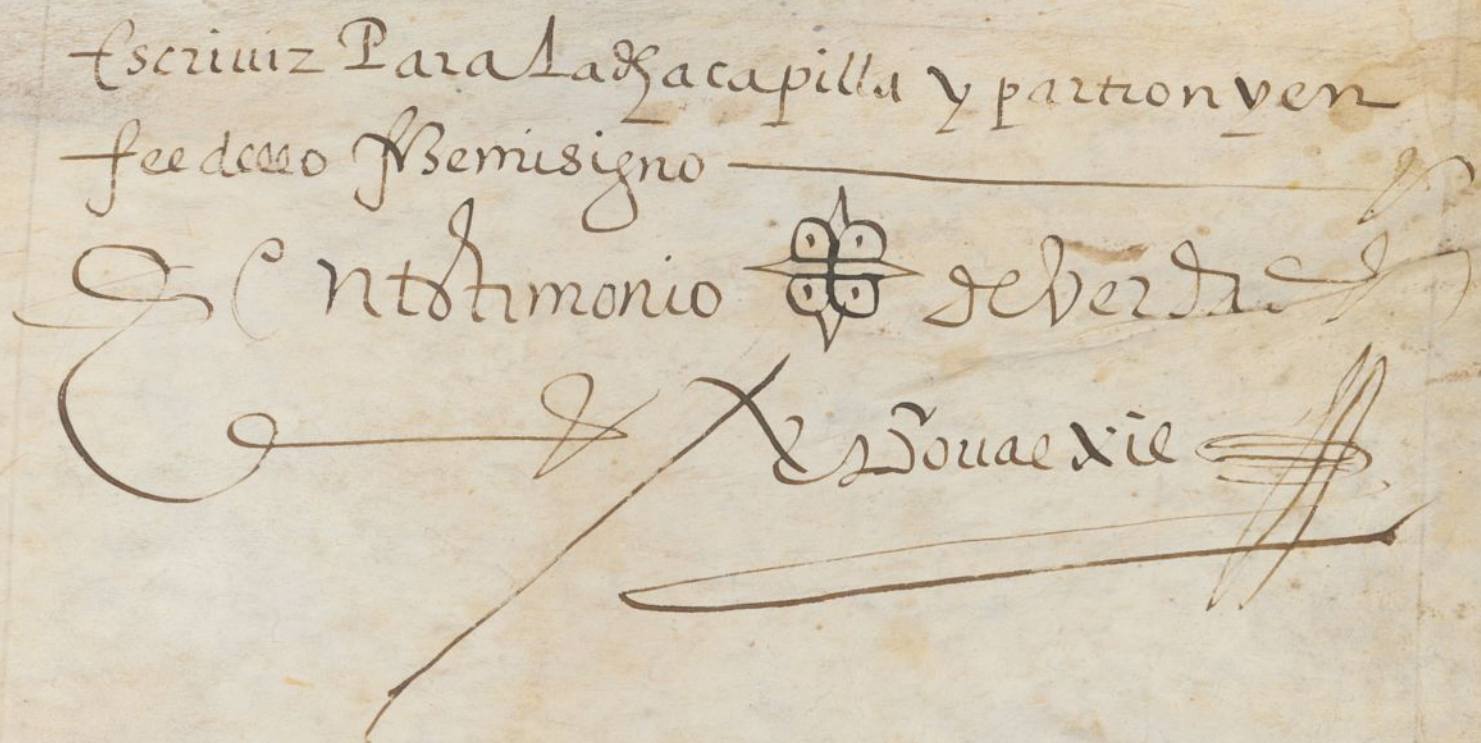 Escriuir Para La dha capilla y partron y en
fee dello fize mi signo
En testimonio de Verdad